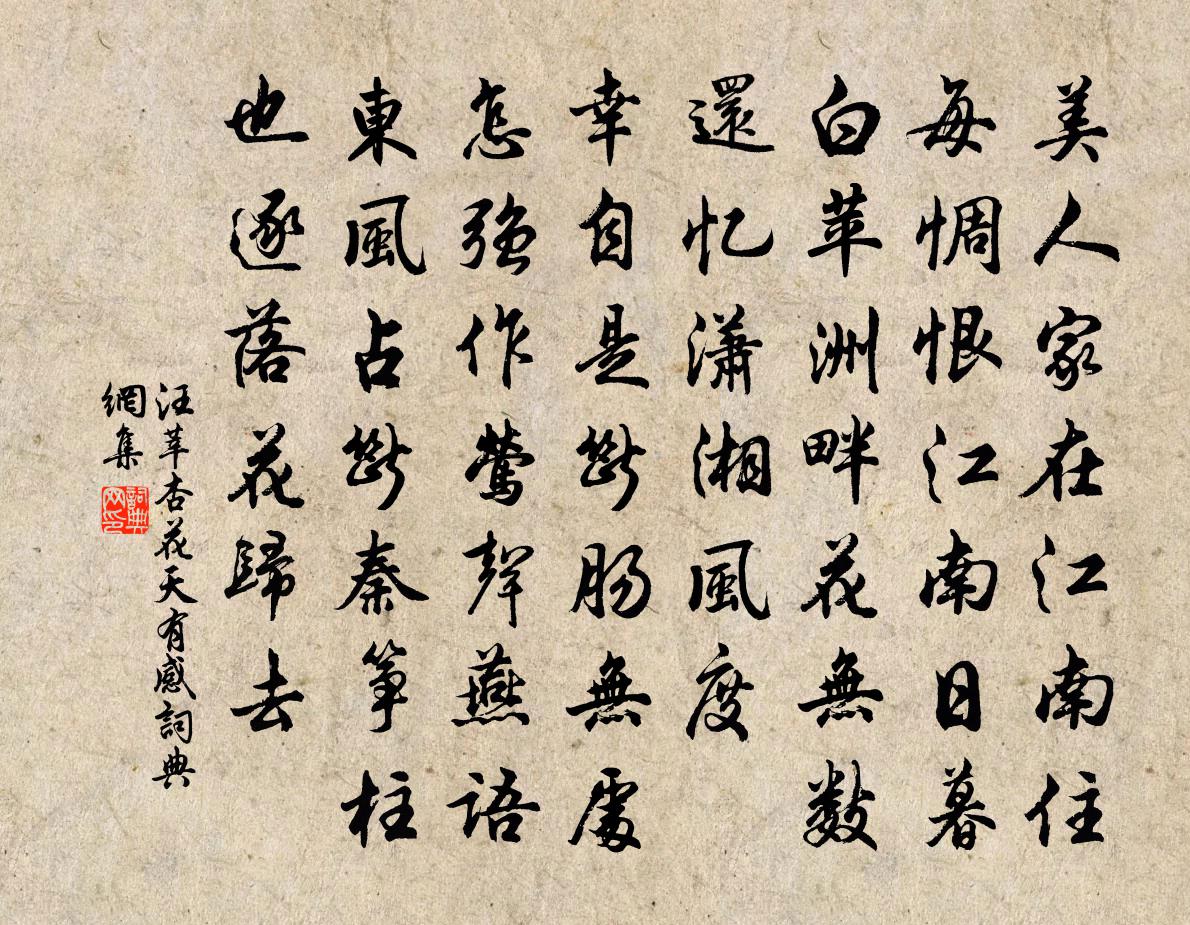 美人家在江南住
每惆恨江南日暮
白苹洲畔花無數
還忆瀟湘風度
幸自是斷腸無處
怎強作鶯聲燕語
東風占斷秦箏柱
也逐落花歸去
汪莘杏花天有感詞典
網集
詞典
网印